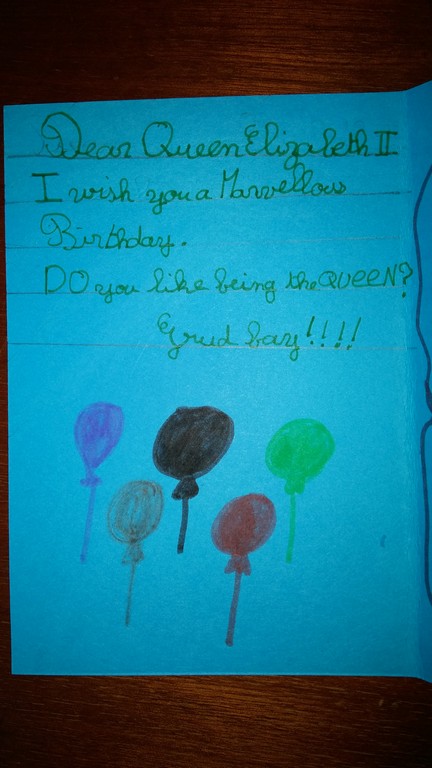 Dear Queen Elizabeth II
I wish you a Marvellous
Birthday.
DO you like being the QUEEN?
Grud bay!!!!